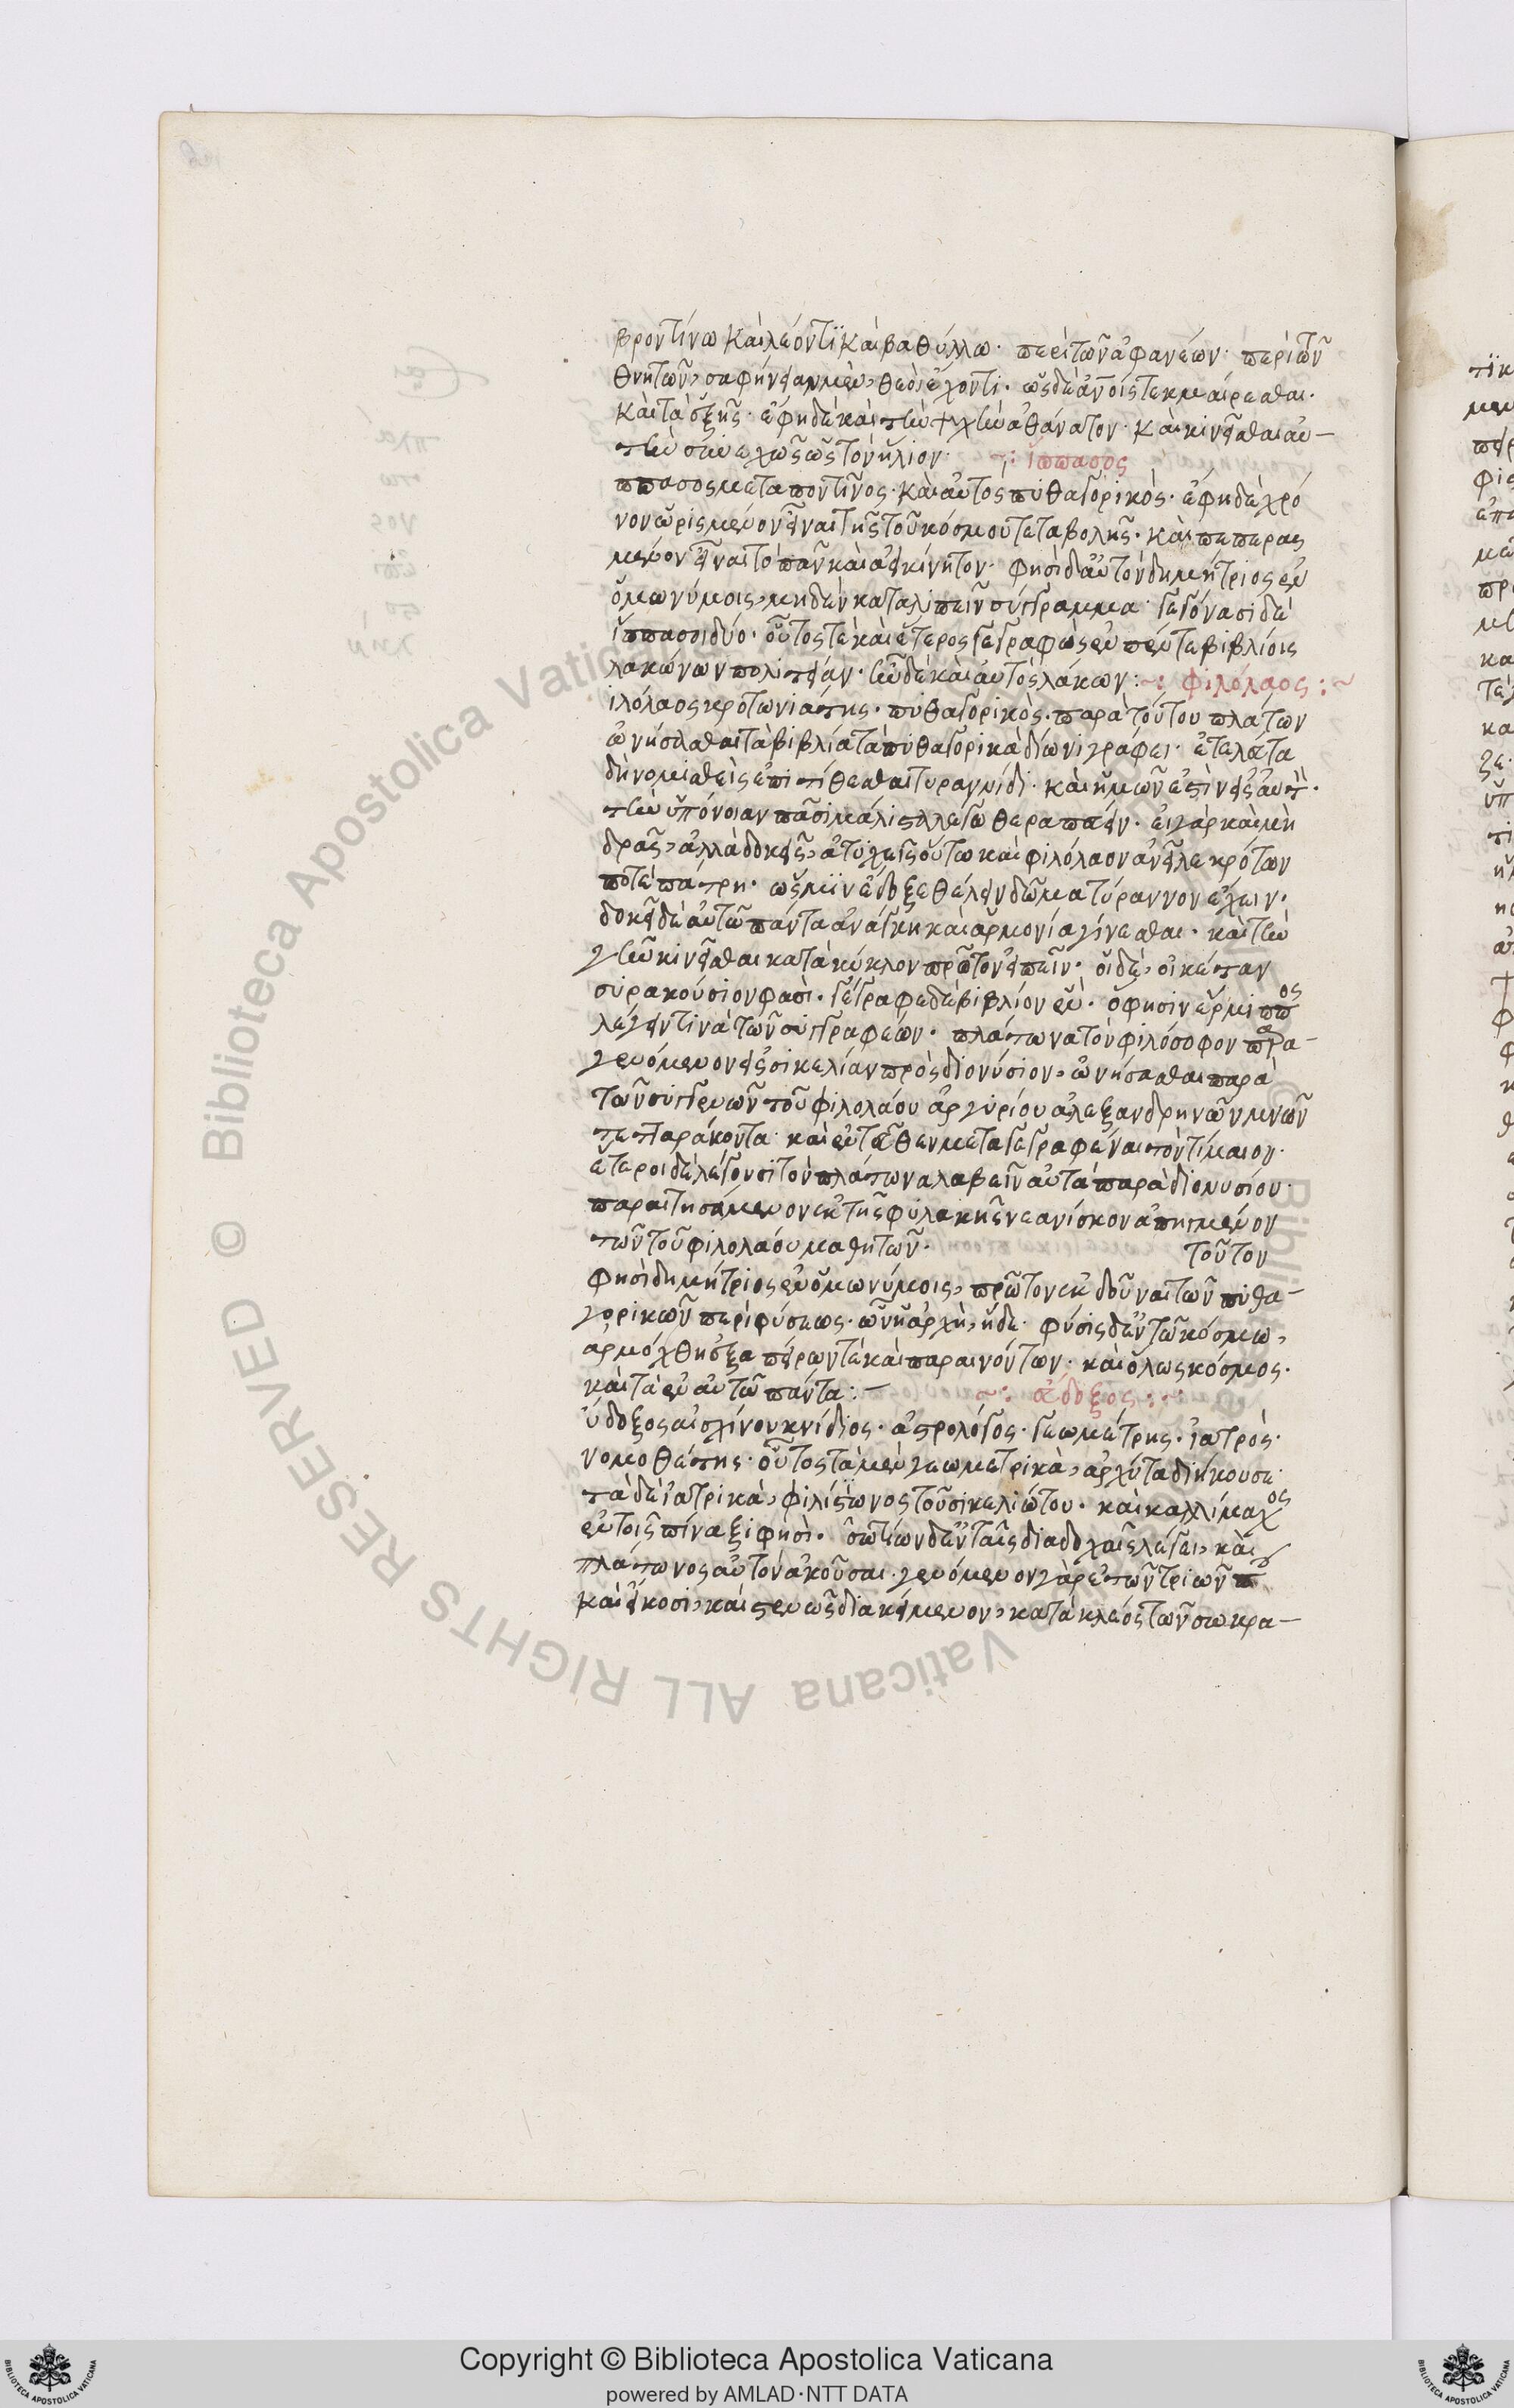 βροντίνω καὶ λέοντϊ καὶ βαθύλλω· περὶ τῶν ἀφανέων· περὶ τῶν
θνητῶν, σαφήνειαν μὲν, θεὸι ἔχοντι. ὡς δὲ ἀνοίς τεκμαίρεσθαι.
καὶ τὰ ἑξῆς. ἔφη δὲ καὶ τὴν ψυχὴν ἀθάνατον. καὶ κινεῖσθαι αὐ-
τὴν συνεχῶς ὡς τὸν ἥλιον· ~: ἵππασος
ππασος μεταποντῖνος. καὶ αὐτὸς πυθαγορικὸς. ἔφη δὲ χρό
νον ὡρισμένον εἶναι τῆς τοῦ κόσμου τεταβολῆς. καὶ πεπερας
μένον εἶναι τὸ πᾶν καὶ ἀεικίνητον. φησὶ δ' αὐτὸν δημήτριος ἐν
ὁμωνύμοις, μηδὲν καταλιπεῖν σύγγραμμα· γεγόνασι δὲ
ἵππασοι δύο. οὗτός τε καὶ ἕτερος γεγραφὼς ἐν πέντε βιβλίοις
λακώνων πολιτείαν. ἦν δὲ καὶ αὐτὸς λάκων: ~: φιλόλαος :~
ιλόλαος κροτωνιάτης. πυθαγορικὸς. παρὰ τούτου πλάτων
ὠνήσασθαι τὰ βιβλία τὰ πυθαγορικὰ δίωνι γράφει. ἐτελεύτα
δὴ νομισθεὶς ἐπιτίθεσθαι τυραννίδι. καὶ ἡμῶν ἐστὶν εἰς αὐτ.
τὴν ὑπόνοιαν πᾶσι μάλιστα λέγω θεραπεύειν. εἰ γὰρ καὶ μὴ
δρᾶς, ἀλλὰ δοκεῖς, ἀτυχεῖς οὕτω καὶ φιλόλαον ἀνεῖλε κρότων
ποτὲ πάτρη. ὥς μϊν ἔδοξε θέλειν δῶμα τύραννον ἔχειν.
δοκεῖ δὲ αὐτῶ πάντα ἀνάγκη καὶ ἁρμονία γίνεσθαι. καὶ τὴν
γῆν κινεῖσθαι κατὰ κύκλον πρῶτον εἰπεῖν. οἱ δὲ, οἰκέταν
συρακούσιον φασὶ. γέγραφε δὲ βιβλίον ἕν. ὅ φησιν ἕρμιππος
λέγειν τινὰ τῶν συγγραφέων. πλάτωνα τὸν φιλόσοφον παρα-
γενόμενον εἰς σικελίαν πρὸς διονύσιον, ὠνήσασθαι παρὰ
τῶν συγγενῶν τοῦ φιλολάου ἀργυρίου ἀλεξανδρηνῶν μνῶν
τετταράκοντα· καὶ ἐντεῦθεν μεταγεγραφέναι τὸν τίμαιον.
ἕτεροι δὲ λέγουσι τὸν πλάτωνα λαβεῖν αὐτὰ παρὰ διονυσίου·
παραιτησάμενον ἐκ τῆς φυλακῆς νεανίσκον ἀπηγμένον
τῶν τοῦ φιλολάου μαθητῶν. τοῦτον
φησὶ δημήτριος ἐν ὁμωνύμοις, πρῶτον ἐκδοῦναι τῶν πυθα-
γορικῶν περὶ φύσεως. ὧν ἡ ἀρχὴ, ἥδε· φύσις δ' ἐν τῶ κόσμω,
ἁρμόχθη ἐξ ἀπείρων τὲ καὶ παραινόντων. καὶ ὅλως κόσμος.
καὶ τὰ ἐν αὐτῶ πάντα:— ~: εὔδοξος: ~:
ύδοξος αἰσχίνου κνίδιος. ἀστρολόγος. γεωμέτρης. ἰατρὸς.
νομοθέτης. οὗτος τὰ μὲν γεωμετρικὰ, ἀρχύτα διήκουσε·
τὰ δὲ ἰατρικὰ, φιλιστίωνος τοῦ σικελιώτου. καὶ καλλίμαχος
ἐν τοῖς πίναξι φησὶ. σωτίων δ' ἐν ταῖς διαδοχαῖς λέγει, καὶ
πλάτωνος αὐτὸν ἀκοῦσαι. γενόμενον γὰρ ἐτῶν τριῶν π
καὶ εἴκοσι, καὶ στενῶς διακείμενον, κατὰ κλέος τῶν σωκρα-
© Biblioteca Apostolica Vaticana ALL RIGHTS RESERVED
Copyright © Biblioteca Apostolica Vaticana
powered by AMLAD·NTT DATA